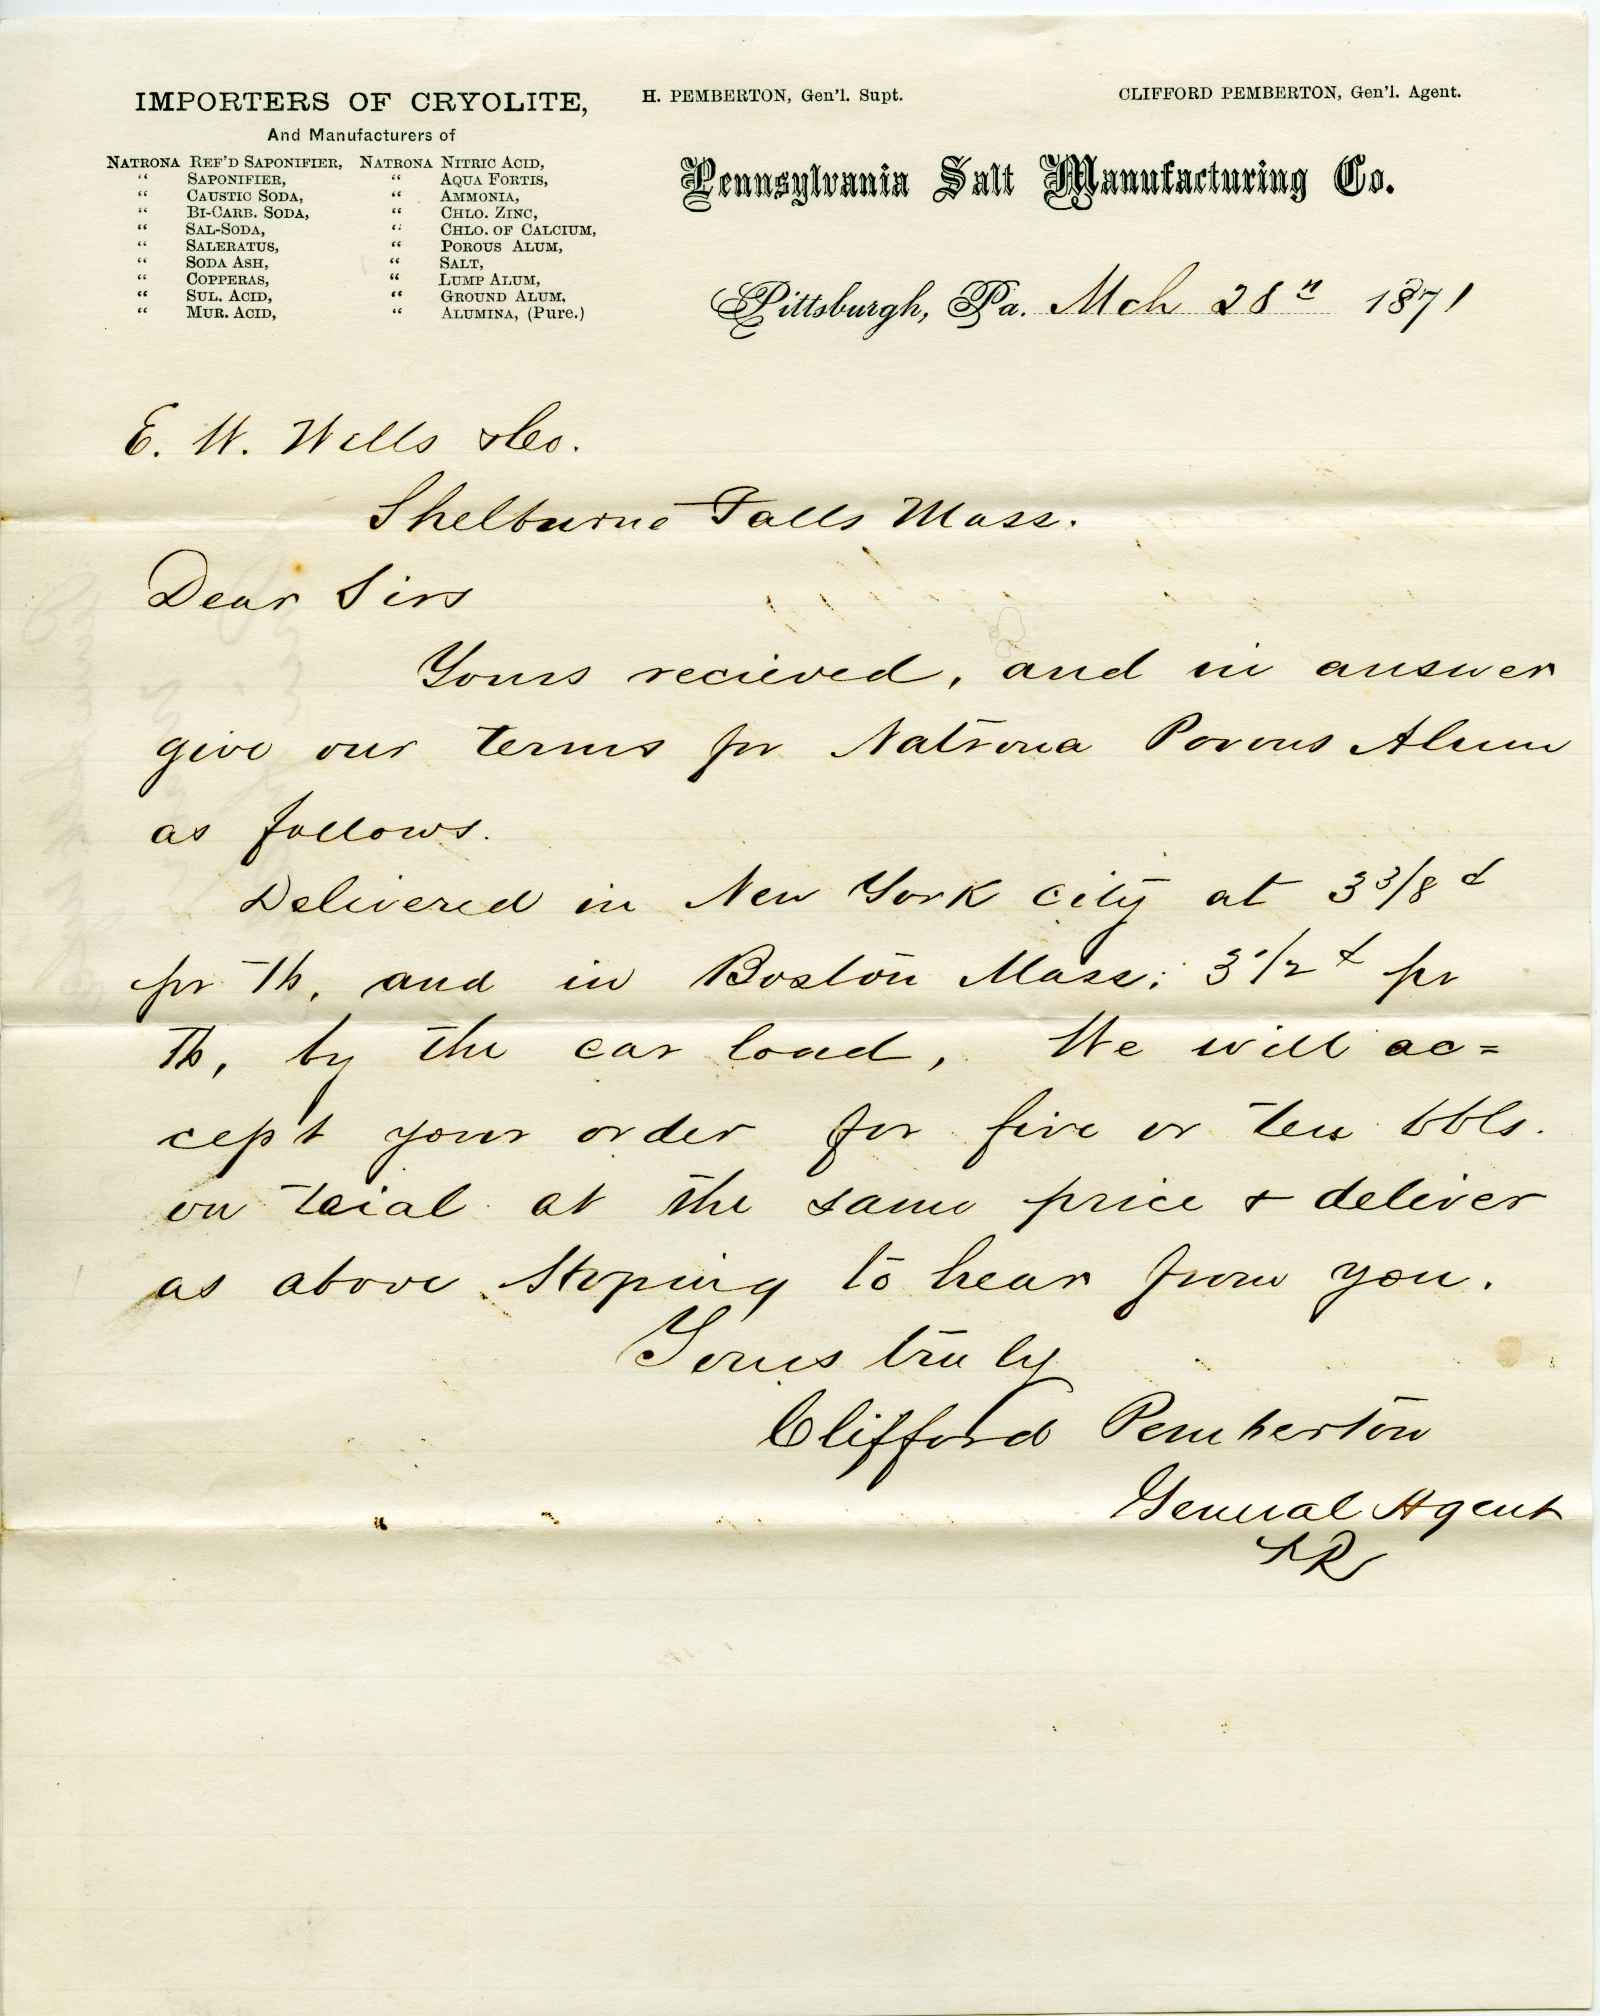 IMPORTERS OF CRYOLITE,
And Manufacturers of
NATRONA REF'D SAPONIFIER, NATRONA NITRIC ACID,
" SAPONIFIER, " AQUA FORTIS,
" CAUSTIC SODA, " AMMONIA,
" BI-CARB. SODA, " CHLO. ZINC,
" SAL-SODA, " CHLO. OF CALCIUM,
" SALERATUS, " POROUS ALUM,
" SODA ASH, " SALT,
" COPPERAS, " LUMP ALUM,
" SUL. ACID, " GROUND ALUM,
" MUR. ACID, " ALUMINA, (Pure.)
H. PEMBERTON, Gen'l. Supt. CLIFFORD PEMBERTON, Gen'l. Agent.
Pennsylvania Salt Manufacturing Co.
Pittsburgh, Pa. Mch 28 1871
E. W. Wells & Co.
Shelburne Falls Mass.
Dear Sirs
Yours recieved, and in answer
give our terms for Natrona Porous Alum
as follows.
Delivered in New York city at 3 3/8 ¢
pr lb, and in Boston Mass; 3 1/2 ¢ pr
lb, by the car load, We will ac=
cept your order for five or ten bbls.
on trial at the same price & deliver
as above. Hoping to hear from you.
Yours truly
Clifford Pemberton
General Agent